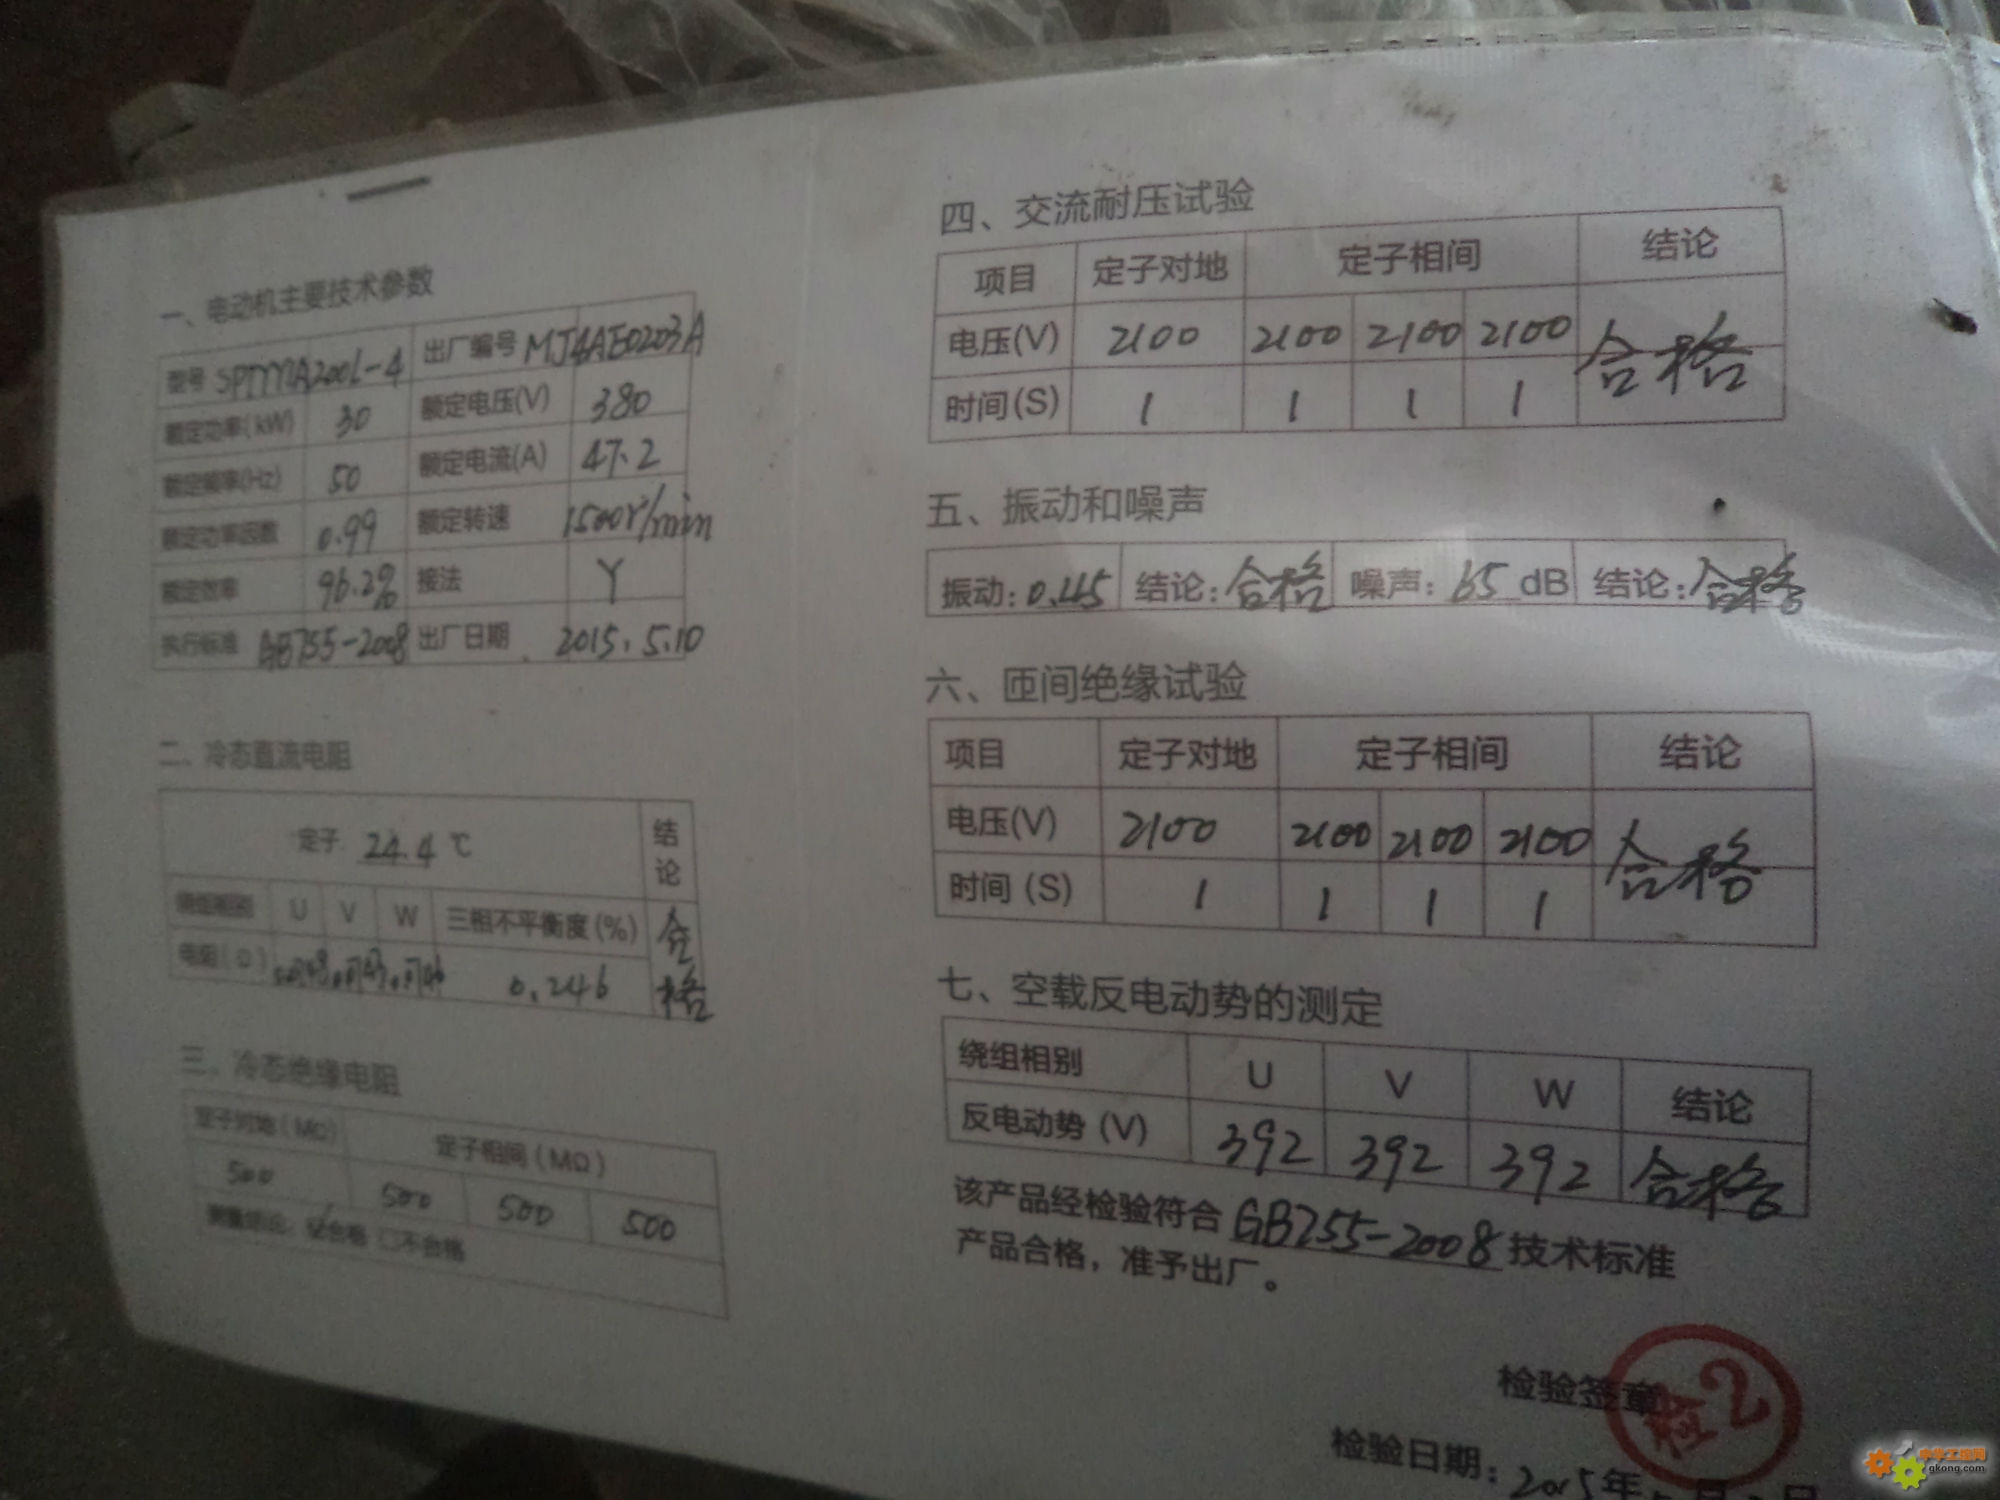 一、电动机主要技术参数
型号 SPMMA200L-4 出厂编号
额定功率(kW) 30 额定电压(V) 380
额定频率(Hz) 50 额定电流(A) 47.2
额定功率因数 0.99 额定转速 1500r/min
额定效率 96.2% 接法 Y
执行标准 GB755-2008 出厂日期 2015.5.10
二、冷态直流电阻
定子 24.4 ℃ 结论
绕组相别 U V W 三相不平衡度(%) 合格
电阻(Ω) 0.246
三、冷态绝缘电阻
定子对地(MΩ) 定子相间(MΩ)
500 500 500 500
测量结论: ☑合格 □不合格
四、交流耐压试验
项目 定子对地 定子相间 结论
电压(V) 2100 2100 2100 2100 合格
时间(S) 1 1 1 1
五、振动和噪声
振动: 结论:合格 噪声:65 dB 结论:合格
六、匝间绝缘试验
项目 定子对地 定子相间 结论
电压(V) 2100 2100 2100 2100 合格
时间(S) 1 1 1 1
七、空载反电动势的测定
绕组相别 U V W 结论
反电动势(V) 392 392 392 合格
该产品经检验符合 GB755-2008 技术标准
产品合格，准予出厂。
检验签章
检2
检验日期: 2015年
中华工控网
gkong.com